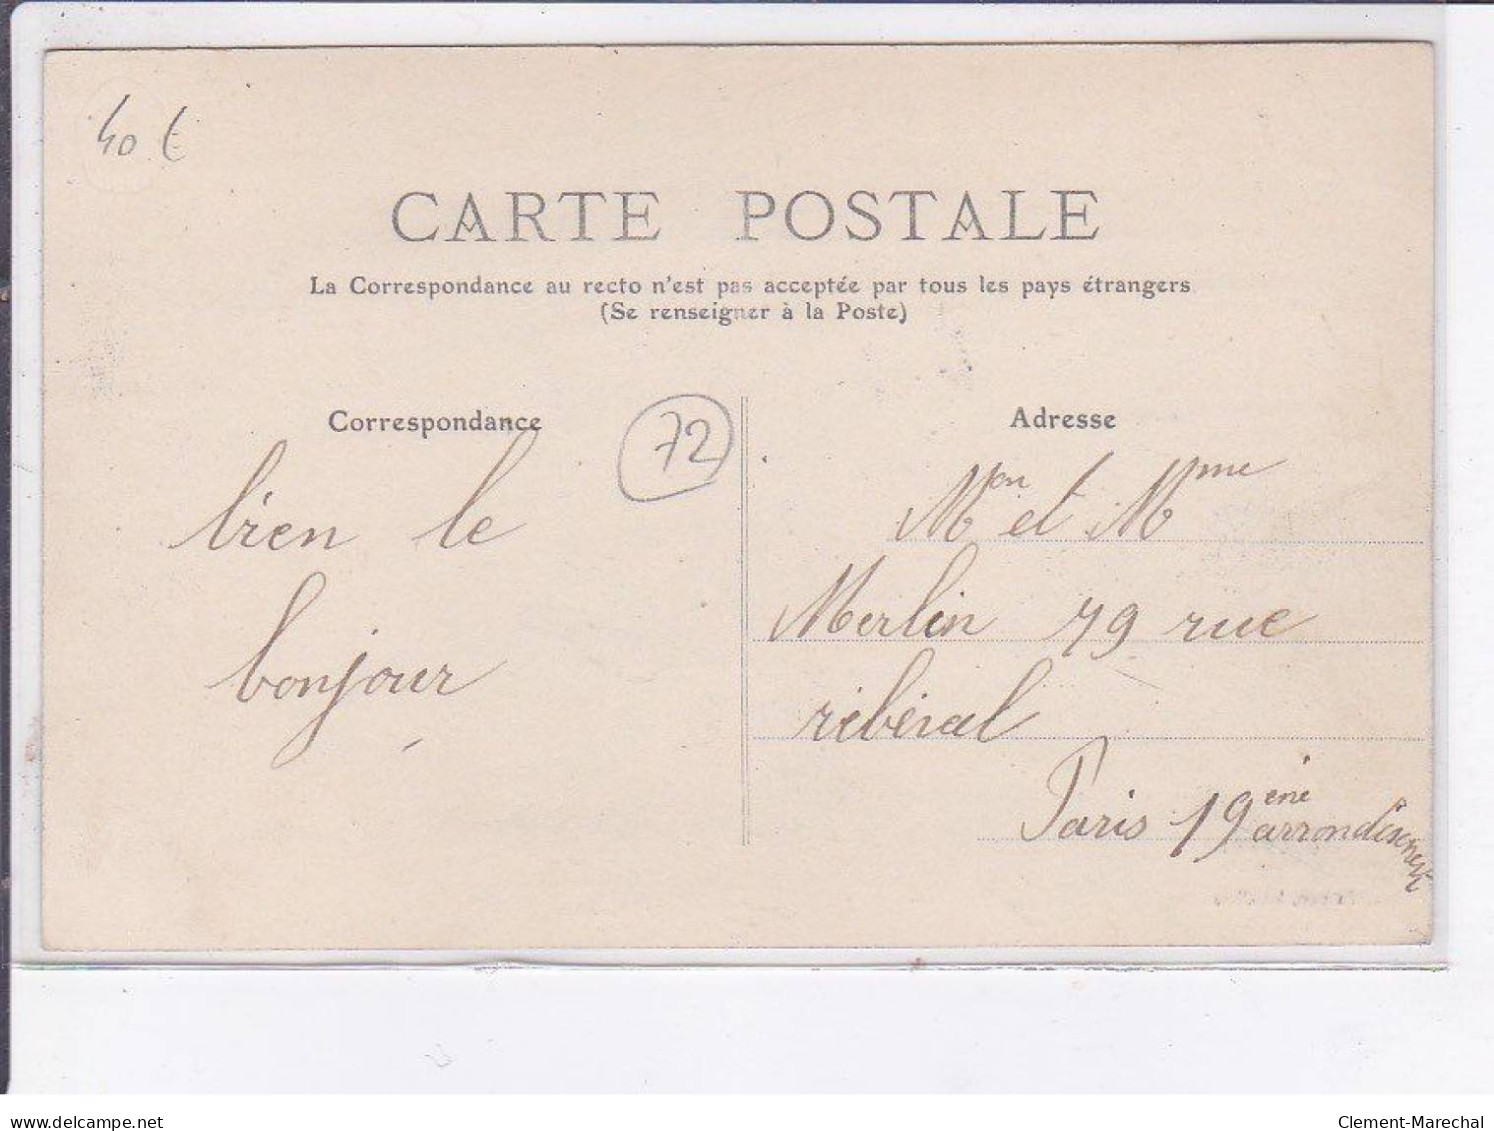 40 €
CARTE POSTALE
La Correspondance au recto n'est pas acceptée par tous les pays étrangers
(Se renseigner à la Poste)
Correspondance
72
Adresse
bien le
bonjour
Mon et Mme
Merlin 79 rue
rébéval
Paris 19ème arrondisment
www.delcampe.net
Clement-Marechal